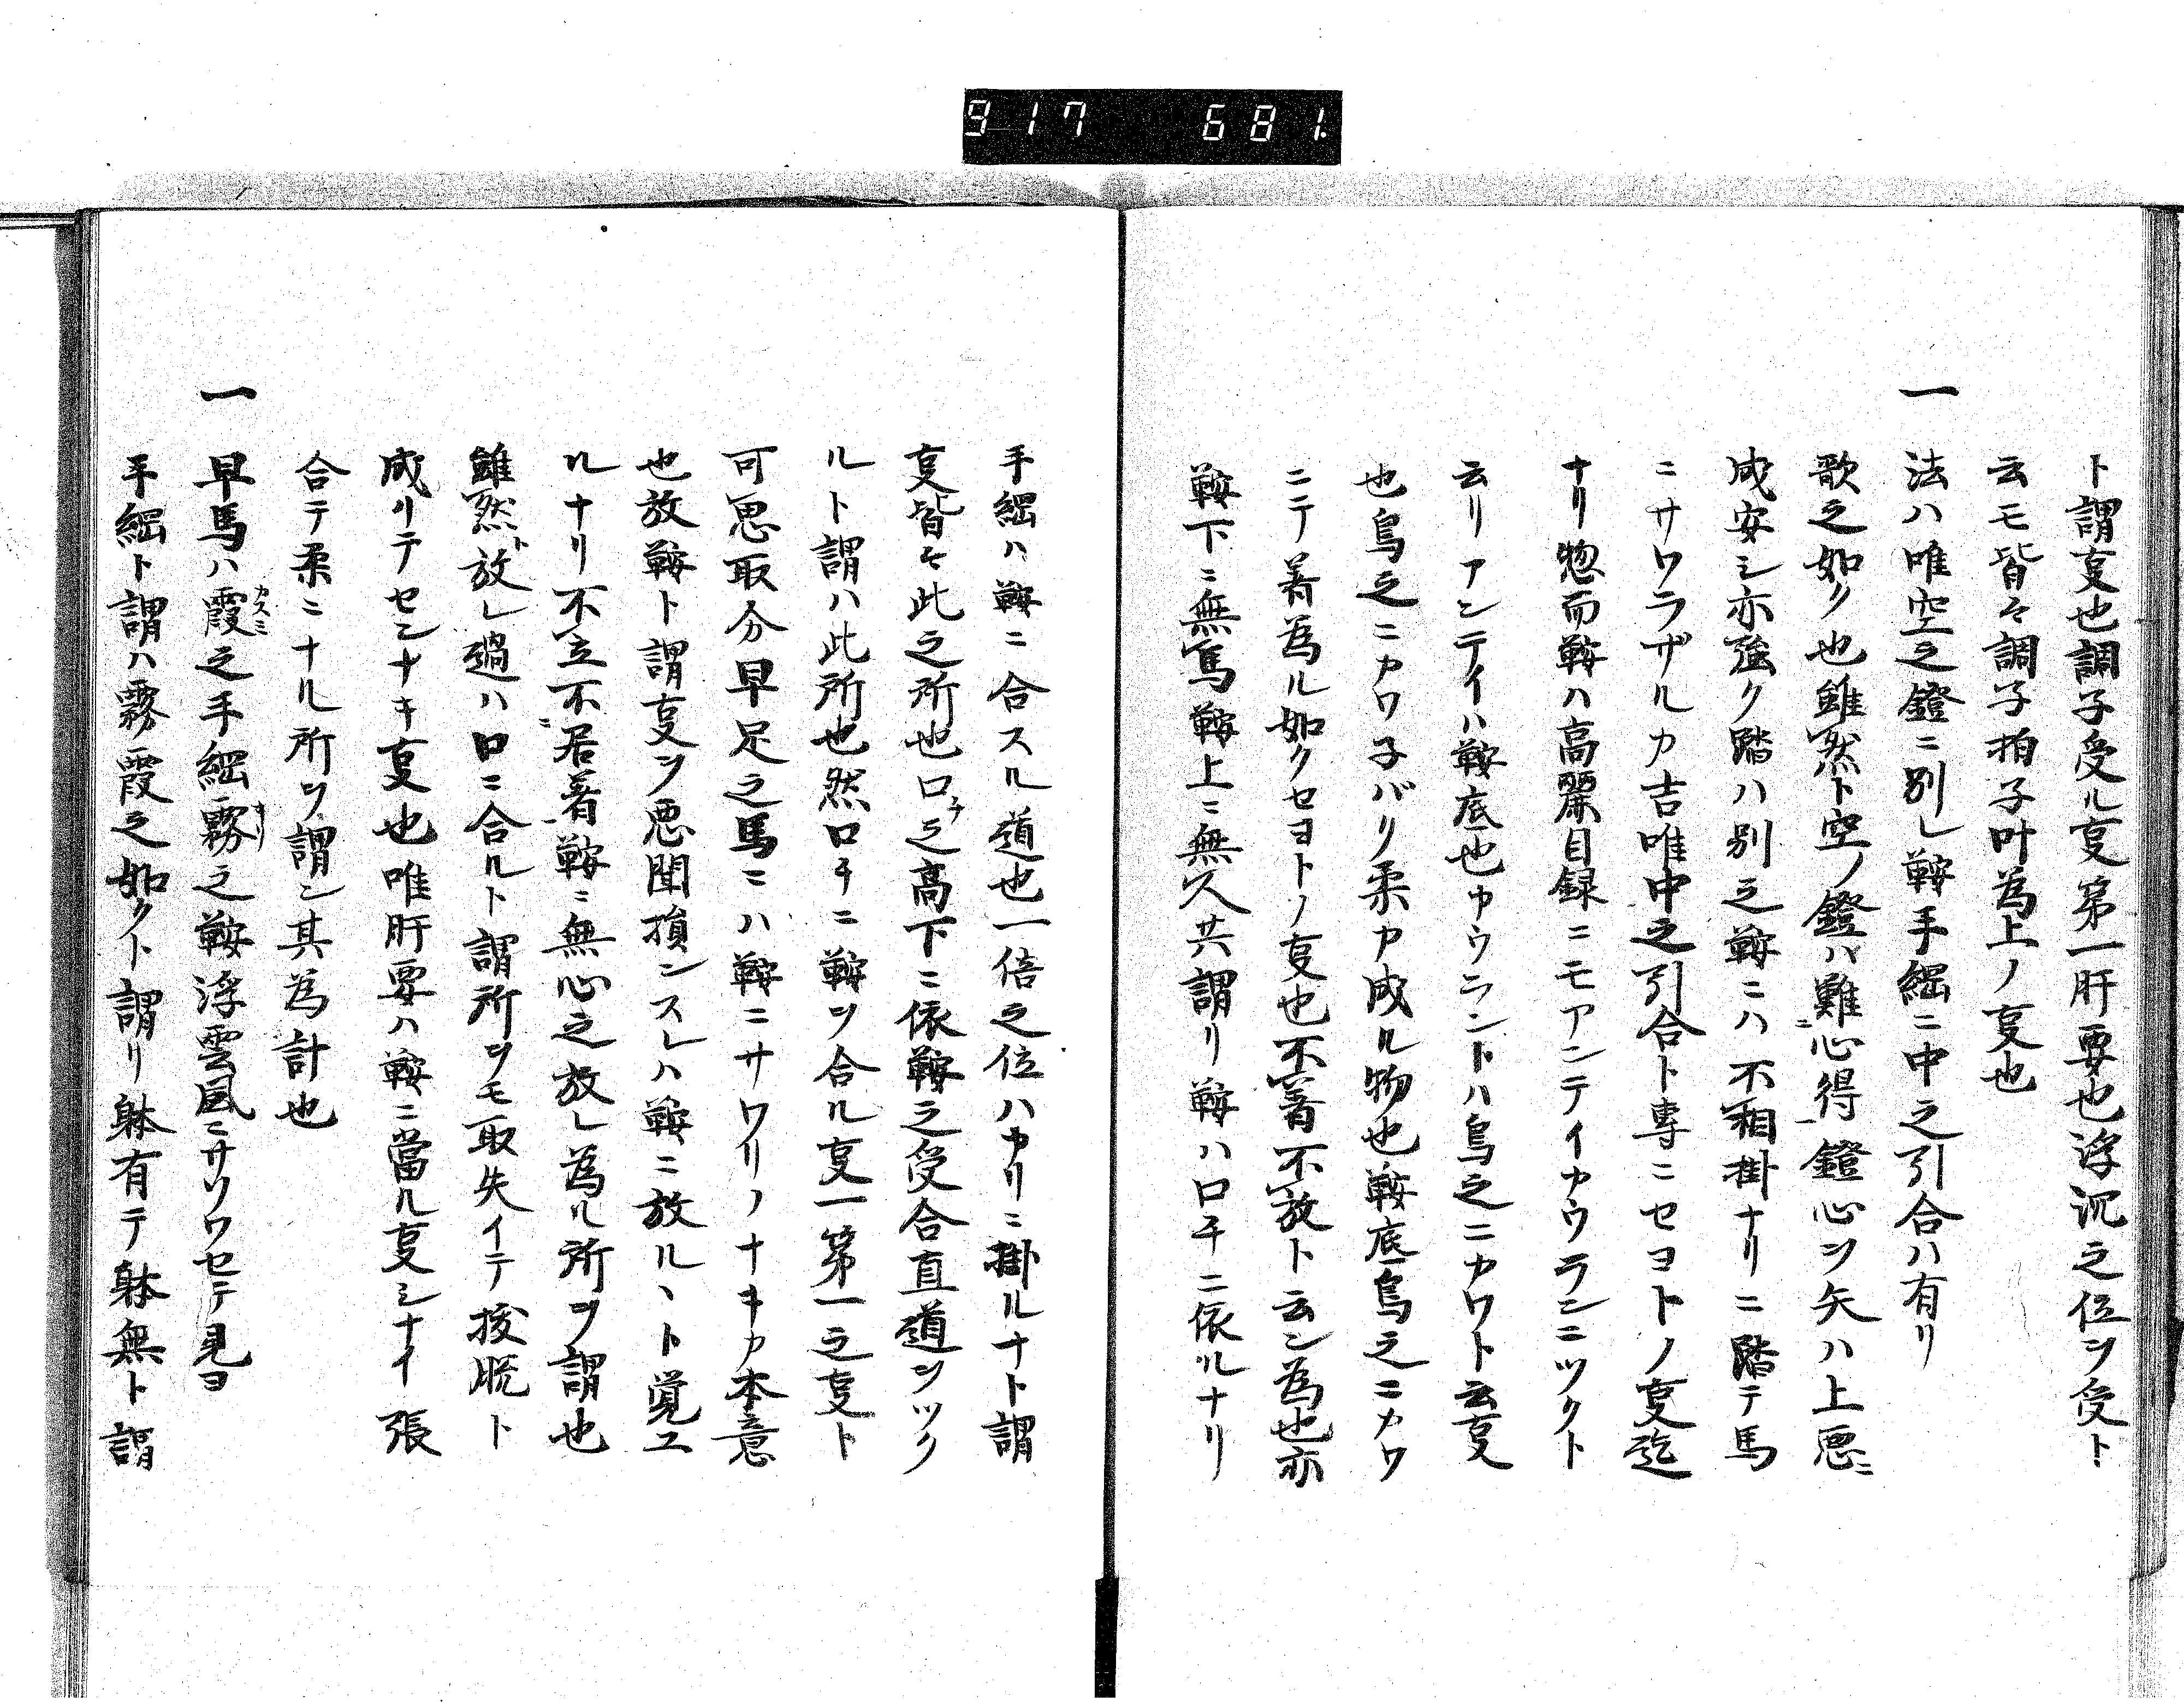 917 681
ト謂叓也調子受ル叓第一肝要也浮沉之位ヲ受ト
云モ皆々調子拍子叶為上ノ叓也
一 法ハ唯空之鐙ニ別レ鞍手綱ニ中之引合ハ有リ
歌之如ク也雖然ト空ノ鐙ハ難ニ心得一鐙心ヲ矢ハ上悪ニ
成安シ亦強ク踏ハ別之鞍ニハ不相掛ナリニ踏テ馬
ニサワラザルカ吉唯中之引合ト専ニセヨトノ叓迄
ナリ惣而鞍ハ高麗目録ニモアンテイカウランニツクト
云リアンテイハ鞍底也カウラントハ烏之ニカワト云叓
也烏之ニカワ子バリ柔カ成ル物也鞍底烏之ニカワ
ニテ着為ル如クセヨトノ叓也不着不放ト云ン為也亦
鞍下ニ無馬鞍上ニ無人共謂リ鞍ハ口チニ依ルナリ
手綱ハ鞍ニ合スル道也一倍之位ハカリニ掛ルナト謂
叓皆々此之所也口チ之高下ニ依鞍之受合直道ヲツク
ルト謂ハ此所也然口チニ鞍ヲ合ル叓一第一之叓ト
可思取分早足之馬ニハ鞍ニサワリノナキカ本意
也放鞍ト謂叓ヲ悪聞損ンスレハ鞍ニ放ルヽト覚エ
ルナリ不立不ニ居着一鞍ニ無心之放レ為ル所ヲ謂也
雖然ト放レ過ハ口ニ合ルト謂所ヲモ取失イテ拔脱ト
成リテセンナキ叓也唯肝要ハ鞍ニ當ル叓シナイ張
合テ柔ニナル所ヲ謂ン其為計也
一 早馬ハ霞カスミ之手綱霧キリ之鞍浮雲風ニサソワセテ見ヨ
手綱ト謂ハ霧霞之如クト謂リ躰有テ躰無ト謂